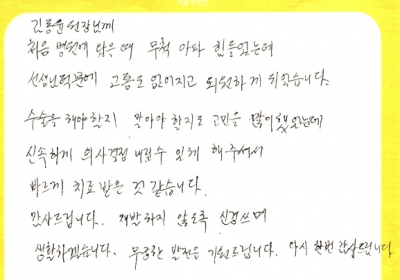 김용윤 원장님께
처음 병원에 왔을 때 무척 아파 힘들었는데
선생님 덕분에 고통도 없어지고 퇴원하게 되었습니다.
수술을 해야할지 말아야 할지도 고민을 많이 했었는데
신속하게 의사결정 내릴수 있게 해주셔서
바르게 치료 받은 것 같습니다.
감사드립니다. 재발하지 않도록 신경쓰며
생활하겠습니다. 무궁한 발전을 기원드립니다. 다시 한번 감사드립니다